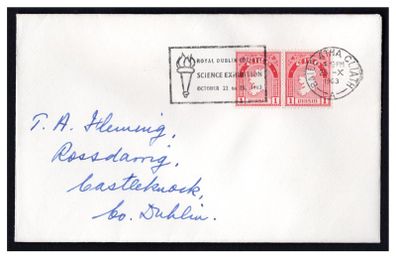 ROYAL DUBLIN SOCIETY
SCIENCE EXHIBITION
OCTOBER 23 to 25, 1963
BAILE ÁTHA CLIATH
X
1963
A
1 1
T. A. Fleming,
Rossdarrig,
Castleknock,
Co. Dublin.